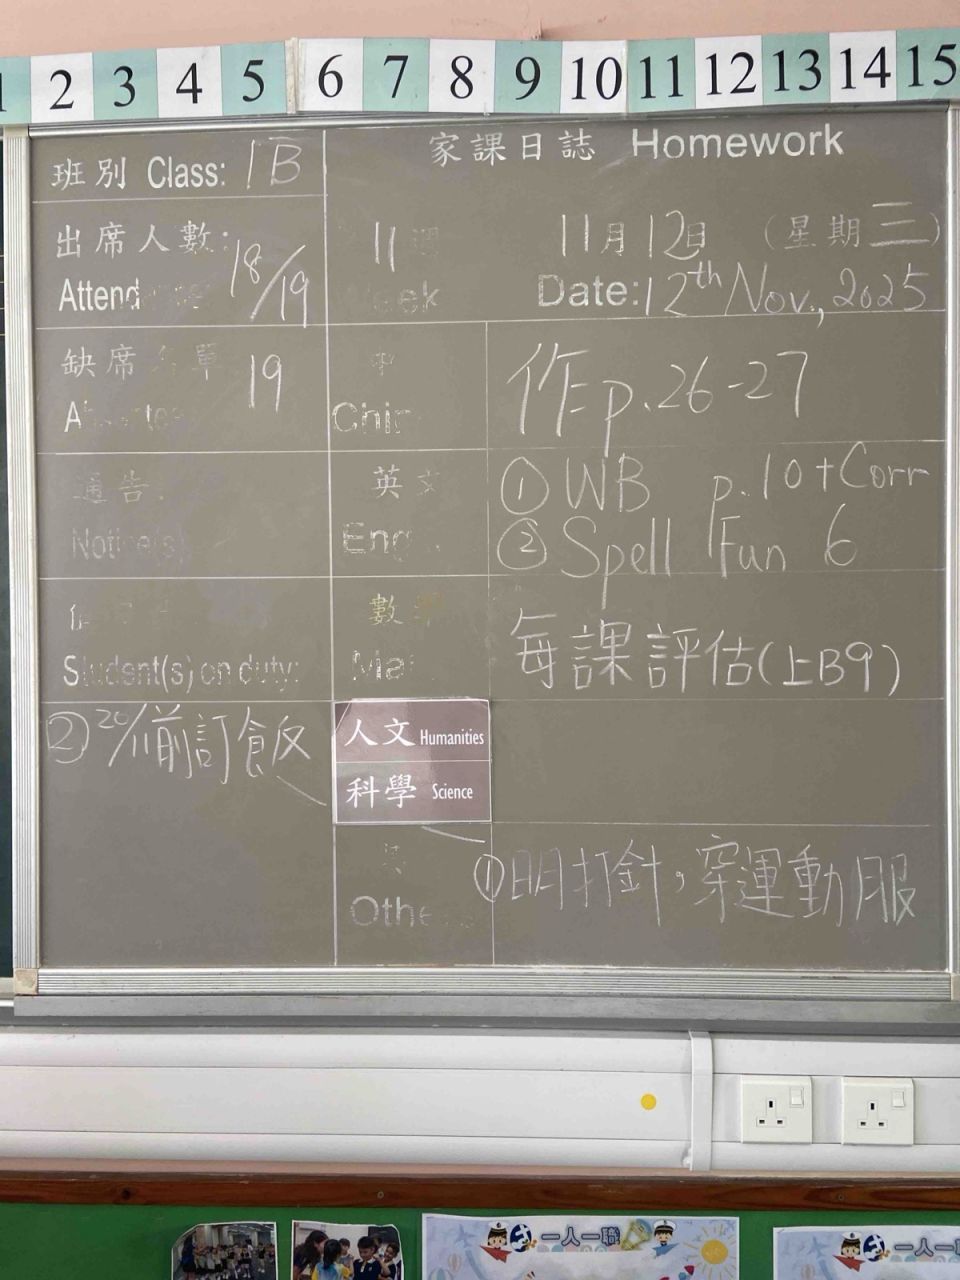 2 3 4 5 6 7 8 9 10 11 12 13 14 15
班別 Class: 1B
家課日誌 Homework
出席人數:
Attend
18/19
11
eek
11月12日 (星期三)
Date: 12th Nov., 2025
缺席 單
19
中
Chin
作p.26-27
通告:
Notice(s)
英文
Eng
① WB p.10+Corr
② Spell Fun 6
Student(s) on duty:
數學
Ma
每課評估(上B9)
② 20/11前訂飯
人文 Humanities
科學 Science
Othe
① 明打針，穿運動服
一人一職
一人一職